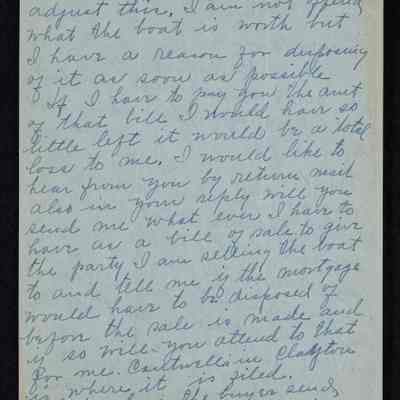 adjust this. I am not
what the boat is worth but
I have a reason for disposing
of it as soon as possible
If I have to pay you the amt
of that bill I would have so
little left it would be a total
loss to me. I would like to
hear from you by return mail
also in your reply will you
send me what ever I have to
have as a bill of sale to give
the party I am selling the boat
to and tell me if the mortgage
would have to be disposed of
before the sale is made and
if so will you attend to that
for me. in Clayton
is where it is filed.
buyer sends